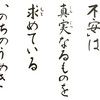 不安は
真実なるものを
求めている
いのちのうめき